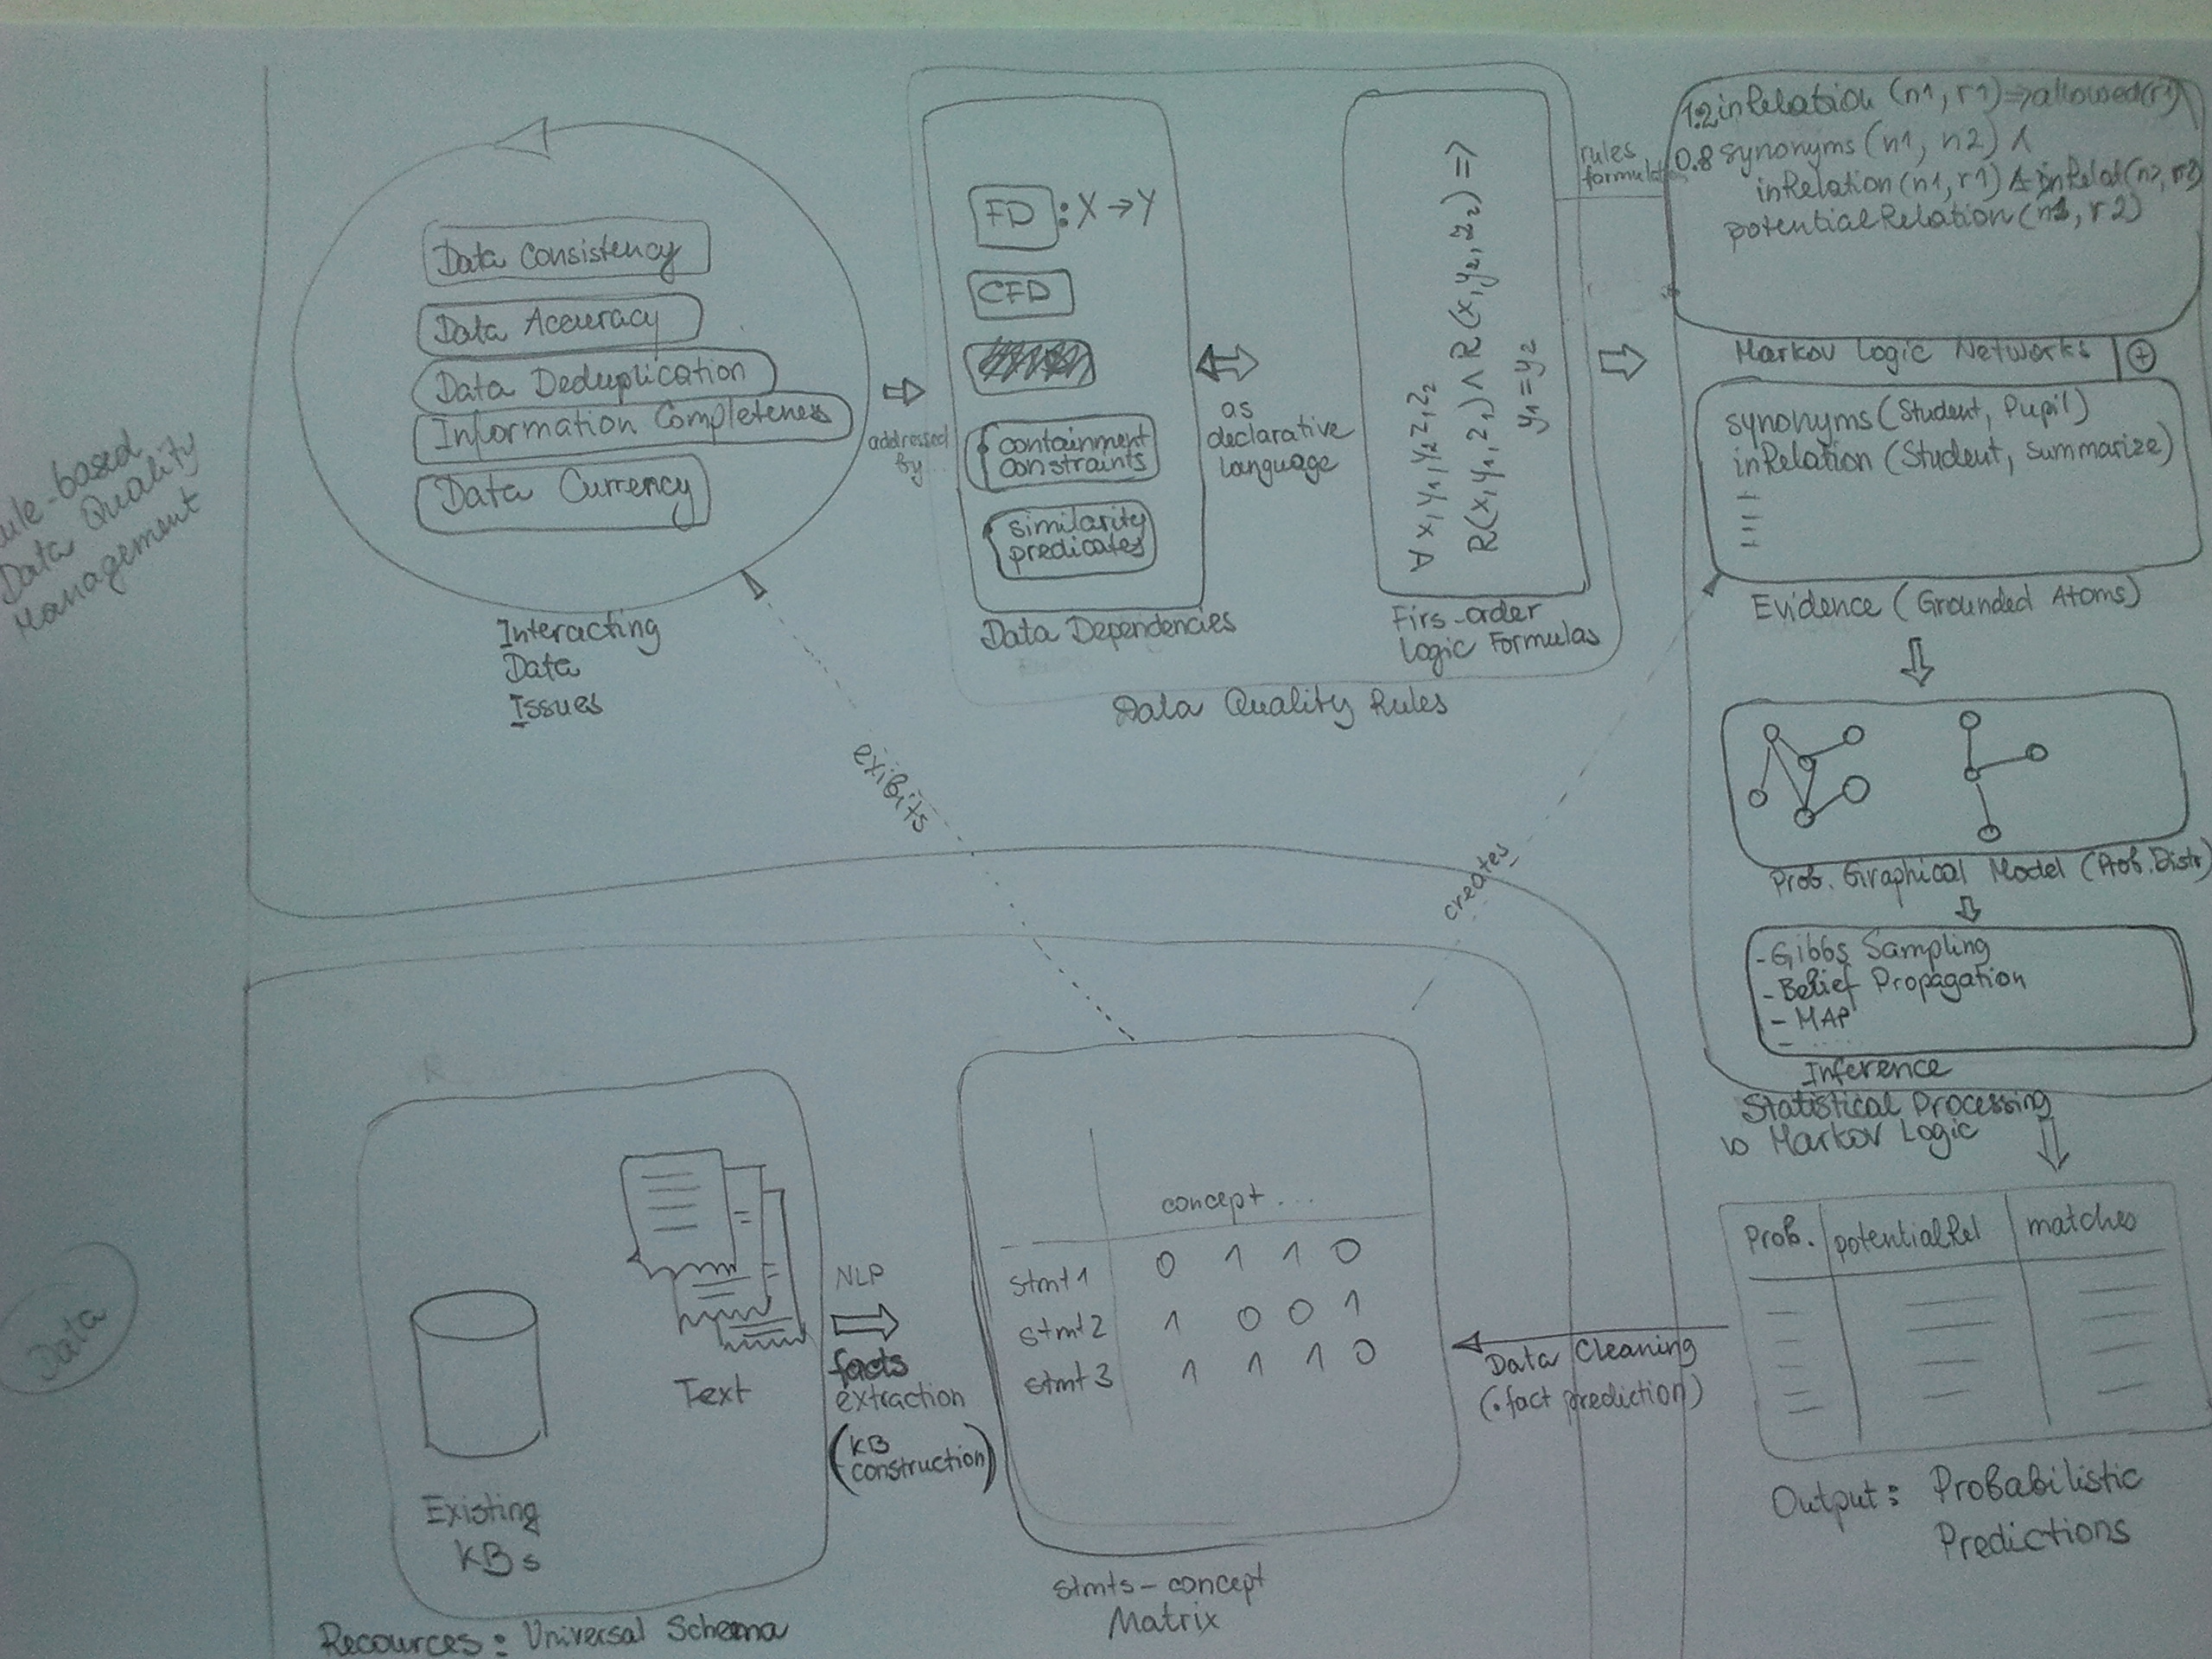 Rule-based
Data Quality
Management
Data Consistency
Data Accuracy
Data Deduplication
Information Completeness
Data Currency
Interacting
Data
Issues
addressed
by
FD : X → Y
CFD
containment
constraints
similarity
predicates
Data Dependencies
as
declarative
language
∀ x, y1, y2 z1, z2
R(x, y1, z1) ∧ R(x, y2, z2) =>
y1 = y2
Firs-order
Logic Formulas
Data Quality Rules
rules
1.2 inRelation (n1, r1) => allowed(r1)
0.8 synonyms (n1, n2) ∧
inRelation (n1, r1) ∧ inRelat(n2, r2)
potentialRelation (n1, r2)
Markov Logic Networks +
synonyms (Student, Pupil)
inRelation (Student, summarize)
Evidence (Grounded Atoms)
Prob. Graphical Model (Prob. Distr)
- Gibbs Sampling
- Belief Propagation
- MAP
- .....
Inference
Statistical Processing
w Markov Logic
exibits
creates
Data
Text
Existing
KBs
Recources : Universal Schema
NLP
facts
extraction
(KB
construction)
concept ...
stmt1 0 1 1 0
stmt2 1 0 0 1
stmt3 1 1 1 0
stmts - concept
Matrix
Data Cleaning
(. fact prediction)
Prob. potentialRel matches
Output : Probabilistic
Predictions